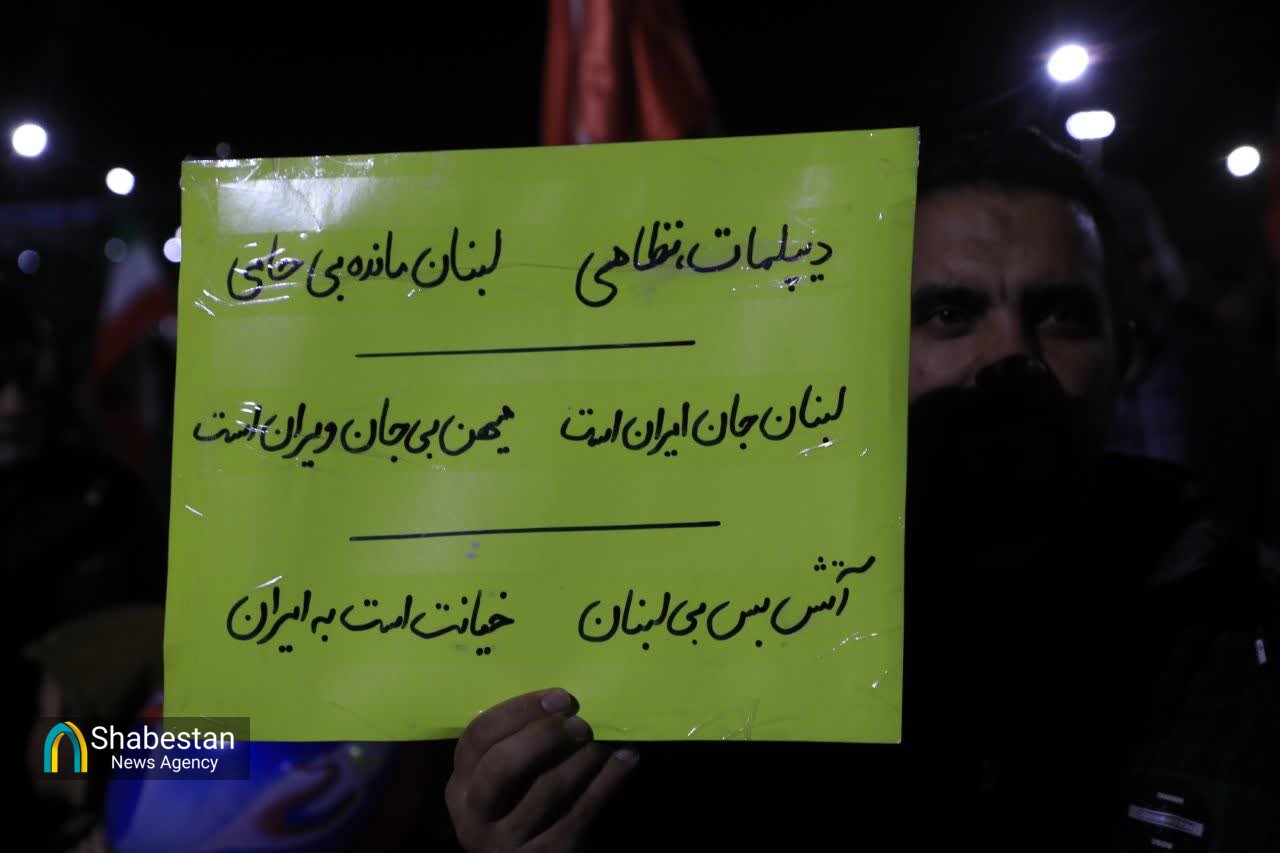 دیپلمات، نظامی لبنان مانده بی حامی
لبنان جان ایران است میهن بی جان ویران است
آتش بس بی لبنان خیانت است به ایران
Shabestan
News Agency